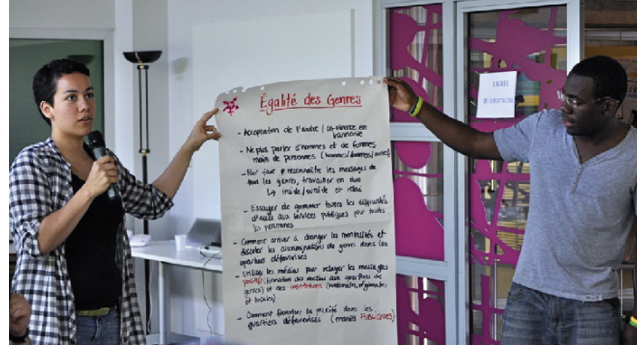 Égalité des Genres
- Acceptation de l'autre / en
harmonie
- Ne plus parler d'hommes et de femmes
mais de personnes (hommes/femmes/)
- Pour faire + reconnaître les messages de
tous les genres, travailler en duo
↳ inside/outside
- Essayer de gommer toutes les difficultés
d'accès aux services publiques pour toutes
les personnes
- Comment arriver à changer les mentalités et
les discriminations de genre dans les
quartiers défavorisés
- Utiliser les médias pour relayer les messages
positifs (formation des médias aux questions de
genres) et des institutions (nationales, régionales
et locales)
- Comment favoriser la mixité dans les
quartiers défavorisés (manifs PUBLIQUES)